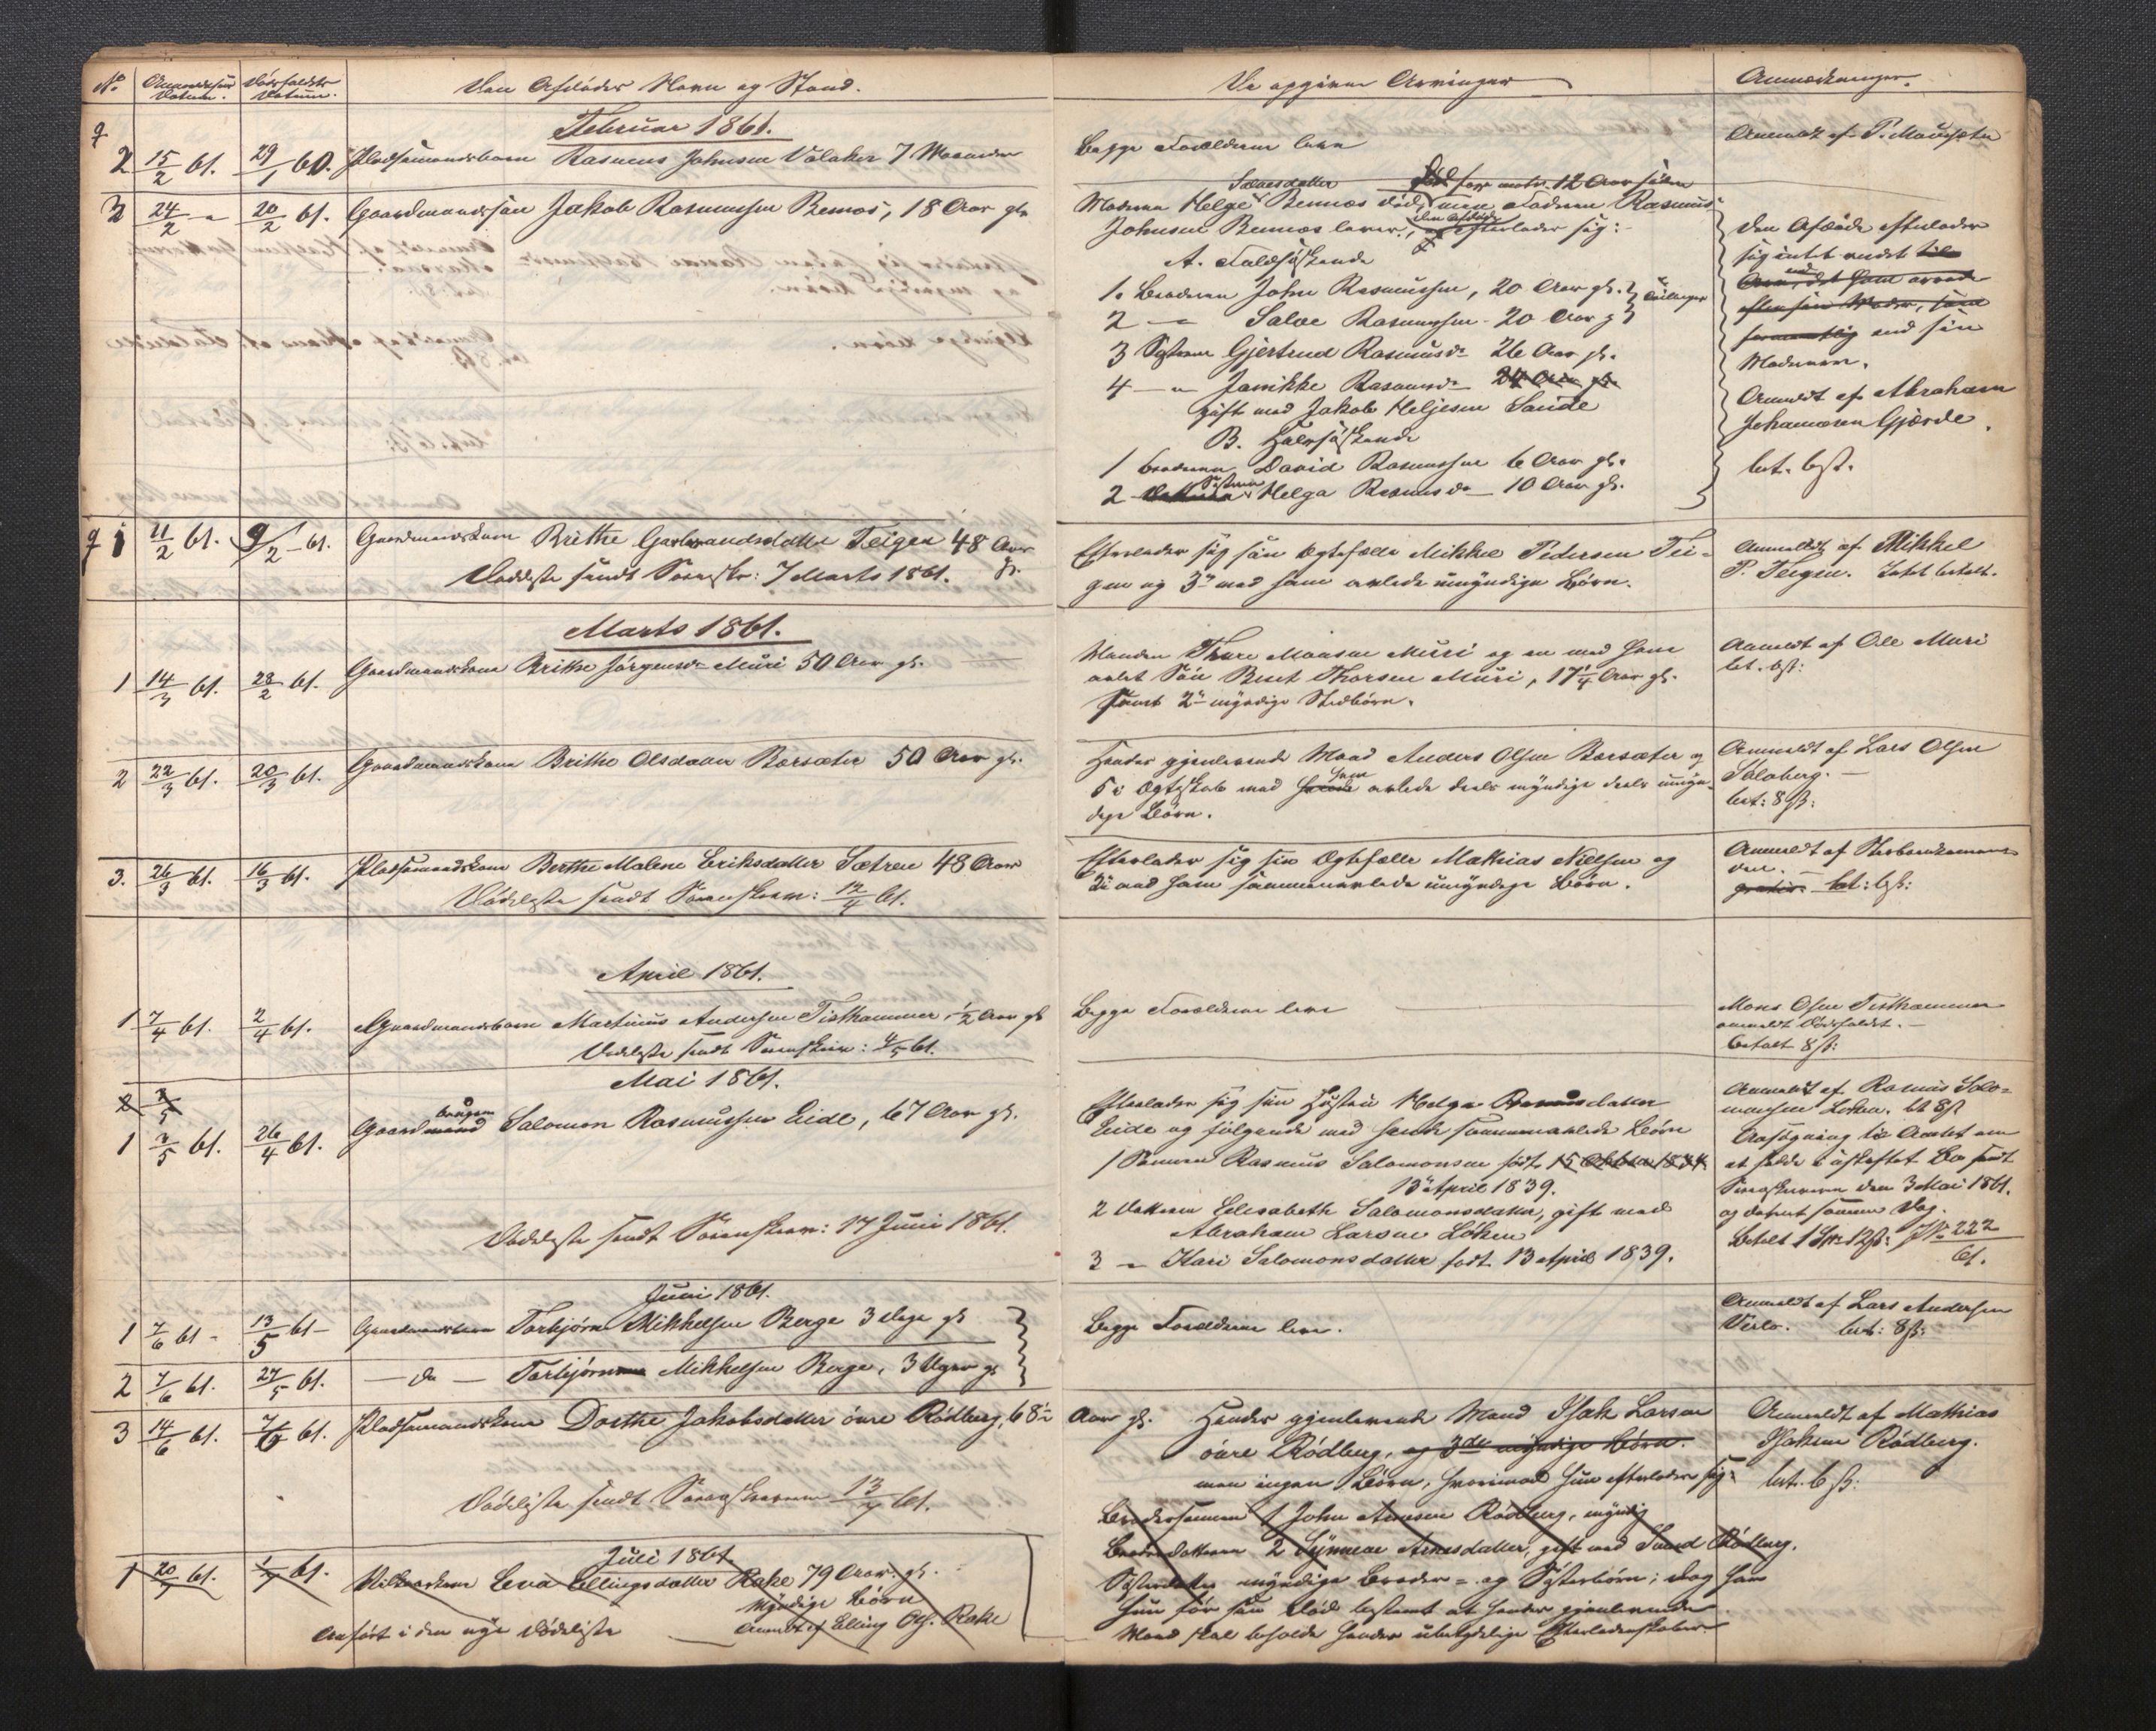 No Anmeldelsens Datum. Dødsfaldets Datum. Den Afdødes Navn og Stand. De opgivne Arvinger Anmærkninger.
Februar 1861.
2 15/2 61. 29/1 60. Pladsemandsbarn Rasmus Johnsen Vålaker 7 Maaneder
Begge Forældrene leve
Anmeldt af P.
3 24/2 " 20/2 61. Gaardmandssøn Jakob Rasmussen Bennæs, 18 Aar gl.
for 12 Aar siden
Moderen Helge Salvesdatter Bennæs død, men Faderen Rasmus
Johnsen Bennæs lever, den afdøde efterlader sig:
A. Fuldsøskende
1. Broderen John Rasmussen, 20 Aar gl. Tvillinger
2 — Salve Rasmussen 20 Aar g
3 Søsteren Gjertrud Rasmusdr 26 Aar gl.
4 — " Janikke Rasmusdr 24 Aar gl.
gift med Jakob Heljesen Sande
B. Halvsøskende
1 Broderen David Rasmussen 6 Aar gl.
2 Søsteren Helga Rasmusdr 10 Aar gl.
Den Afdøde efterlader
sig intet andet til
Arv, end det ham arvede
efter sin Moder, som
end sin
Moderarv.
Anmeldt af Abraham
Johannesen Gjærde.
bet. 6 ß.
1 11/2 61. 9/2 61. Gaardmandskone Brithe Garbrandsdatter Teigen 48 Aar gl.
Dødsliste sendt Sorenskr: 7 Marts 1861.
Efterlader sig sin Ægtefælle Mikkel Pedersen Tei-
gen og 3de med ham avlede umyndige Børn.
Anmeldt af Mikkel
P. Teigen. Intet betalt.
Marts 1861.
1 14/3 61. 28/2 61. Gaardmandskone Brithe Jørgensdr Muri 50 Aar gl.
Manden Thore Monsen Muri og en med ham
avlet Søn Bent Thorsen Muri, 17 1/4 Aar gl.
samt 2de myndige Stedbørn.
Anmeldt af Ole Muri
bet. 6 ß:
2 22/3 61. 20/3 61. Gaardmandskone Brithe Olsdatter Borsæter 50 Aar gl.
Hendes gjenlevende Mand Anders Olsen Borsæter og
5 i Ægteskab med ham avlede deels myndige deels umyn-
dige Børn.
Anmeldt af Lars Olsen
Solaberg. —
bet: 8 ß:
3. 26/3 61. 16/3 61. Pladsemandskone Berthe Malene Eriksdatter Sætren 48 Aar
Dødsliste sendt Sorenskriver: 12/4 61.
Efterlader sig sin Ægtefælle Mathias Nielsen og
2de med ham sammenavlede umyndige Børn.
Anmeldt af Enkemanden.
gratis. bet: 6 ß:
April 1861.
1 7/4 61. 2/4 61. Gaardmandsbarn Martinus Andersen Tisthammer, 1/2 Aar gl
Dødsliste sendt Sorenskriv: 4/5 61.
Begge Forældrene leve
Mons Olsen Tisthammer
anmeldt Dødsfaldet. —
betalt 8 ß:
Mai 1861.
2 3/5
1 3/5 61. 26/4 61. Gaardbruger mand Salomon Rasmussen Eide, 67 Aar gl.
Dødsliste sendt Sorenskriv: 17 Juni 1861.
Efterlader sig sin Hustru Helga Rasmusdatter
Eide og følgende med hende sammenavlede Børn
1 Sønnen Rasmus Salomonsen født 15 Oktober 1834
13 April 1839.
2 Datteren Elisabeth Salomonsdatter, gift med
Abraham Larsen Løken
3 — " Kari Salomonsdatter født 13 April 1839.
Anmeldt af Rasmus Salo-
monsen Løken. bt 8 ß
Ansøgning til Amtet om
at sidde i uskiftet Bo sendt
Sorenskriveren den 3 Mai 1861.
og dateret samme Dag.
Betalt 1 Spd 12 ß: No 222/61.
Juni 1861.
1 7/6 61 - 13/5 61 - Gaardmandsbarn Torbjørn Mikkelsen Berge 3 Dage gl
Begge Forældrene leve.
Anmeldt af Lars Andersen
bet: 8 ß:
2 7/6 61. 27/5 61. — do — Torbjørn Mikkelsen Berge, 3 Uger gl
3 14/6 61. 7/6 61. Pladsemandskone Dorthe Jakobsdatter øvre Rødberg, 68 1/2 Aar gl.
Dødsliste sendt Sorenskriveren 13/7 61.
Hendes gjenlevende Mand Isak Larsen
øvre Rødberg, og 3de myndige Børn.
men ingen Børn, hvorimod hun efterlader sig:
Brodersønnen 1 John Arnesen Rødberg, myndig
Broderdatteren 2 Synneve Arnesdatter, gift med Rødberg.
Søsterdatter myndige Broder- og Søsterbørn; dog har
hun før sin Død bestemt at hendes gjenlevende
Mand skal beholde hendes ubetydelige Efterladenskaber.
Anmeldt af Mathias
Isaksen Rødberg.
bet. 6 ß:
Juli 1861.
1 20/7 61. 1/7 61. Kaarkone Lena Ellingsdatter Rake 79 Aar gl.
Myndige Børn
Anmeldt af Elling Rake
Anført i den nye Dødsliste